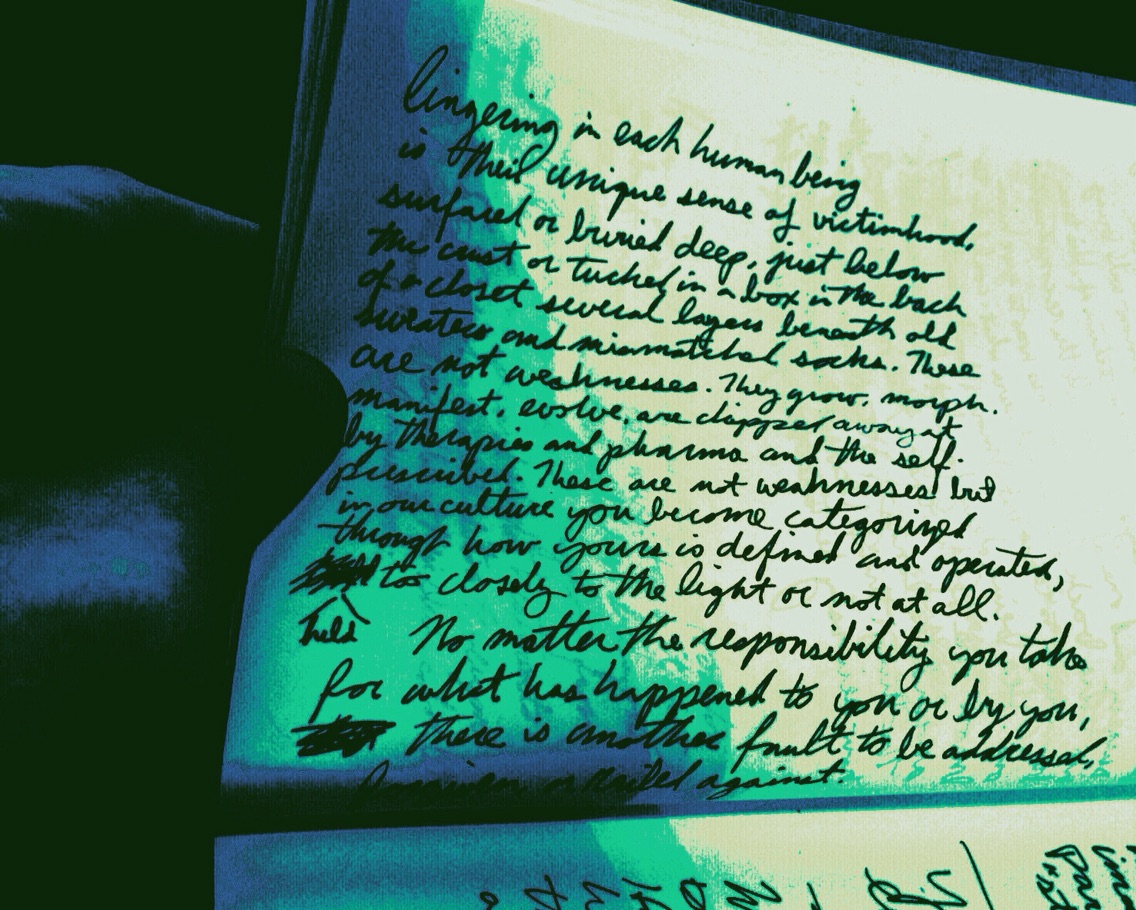 lingering in each human being
is their unique sense of victimhood,
surfaced or buried deep, just below
the crust or tucked in a box in the back
of a closet several layers beneath old
sweaters and mismatched socks. These
are not weaknesses. They grow, morph.
manifest, evolve, are chipped away at
by therapies and pharma and the self-
prescribed. These are not weaknesses but
in our culture you become categorized
through how yours is defined and operated,
too closely to the light or not at all.
held
No matter the responsibility you take
for what has happened to you or by you,
there is another fault to be addressed,
or railed against.